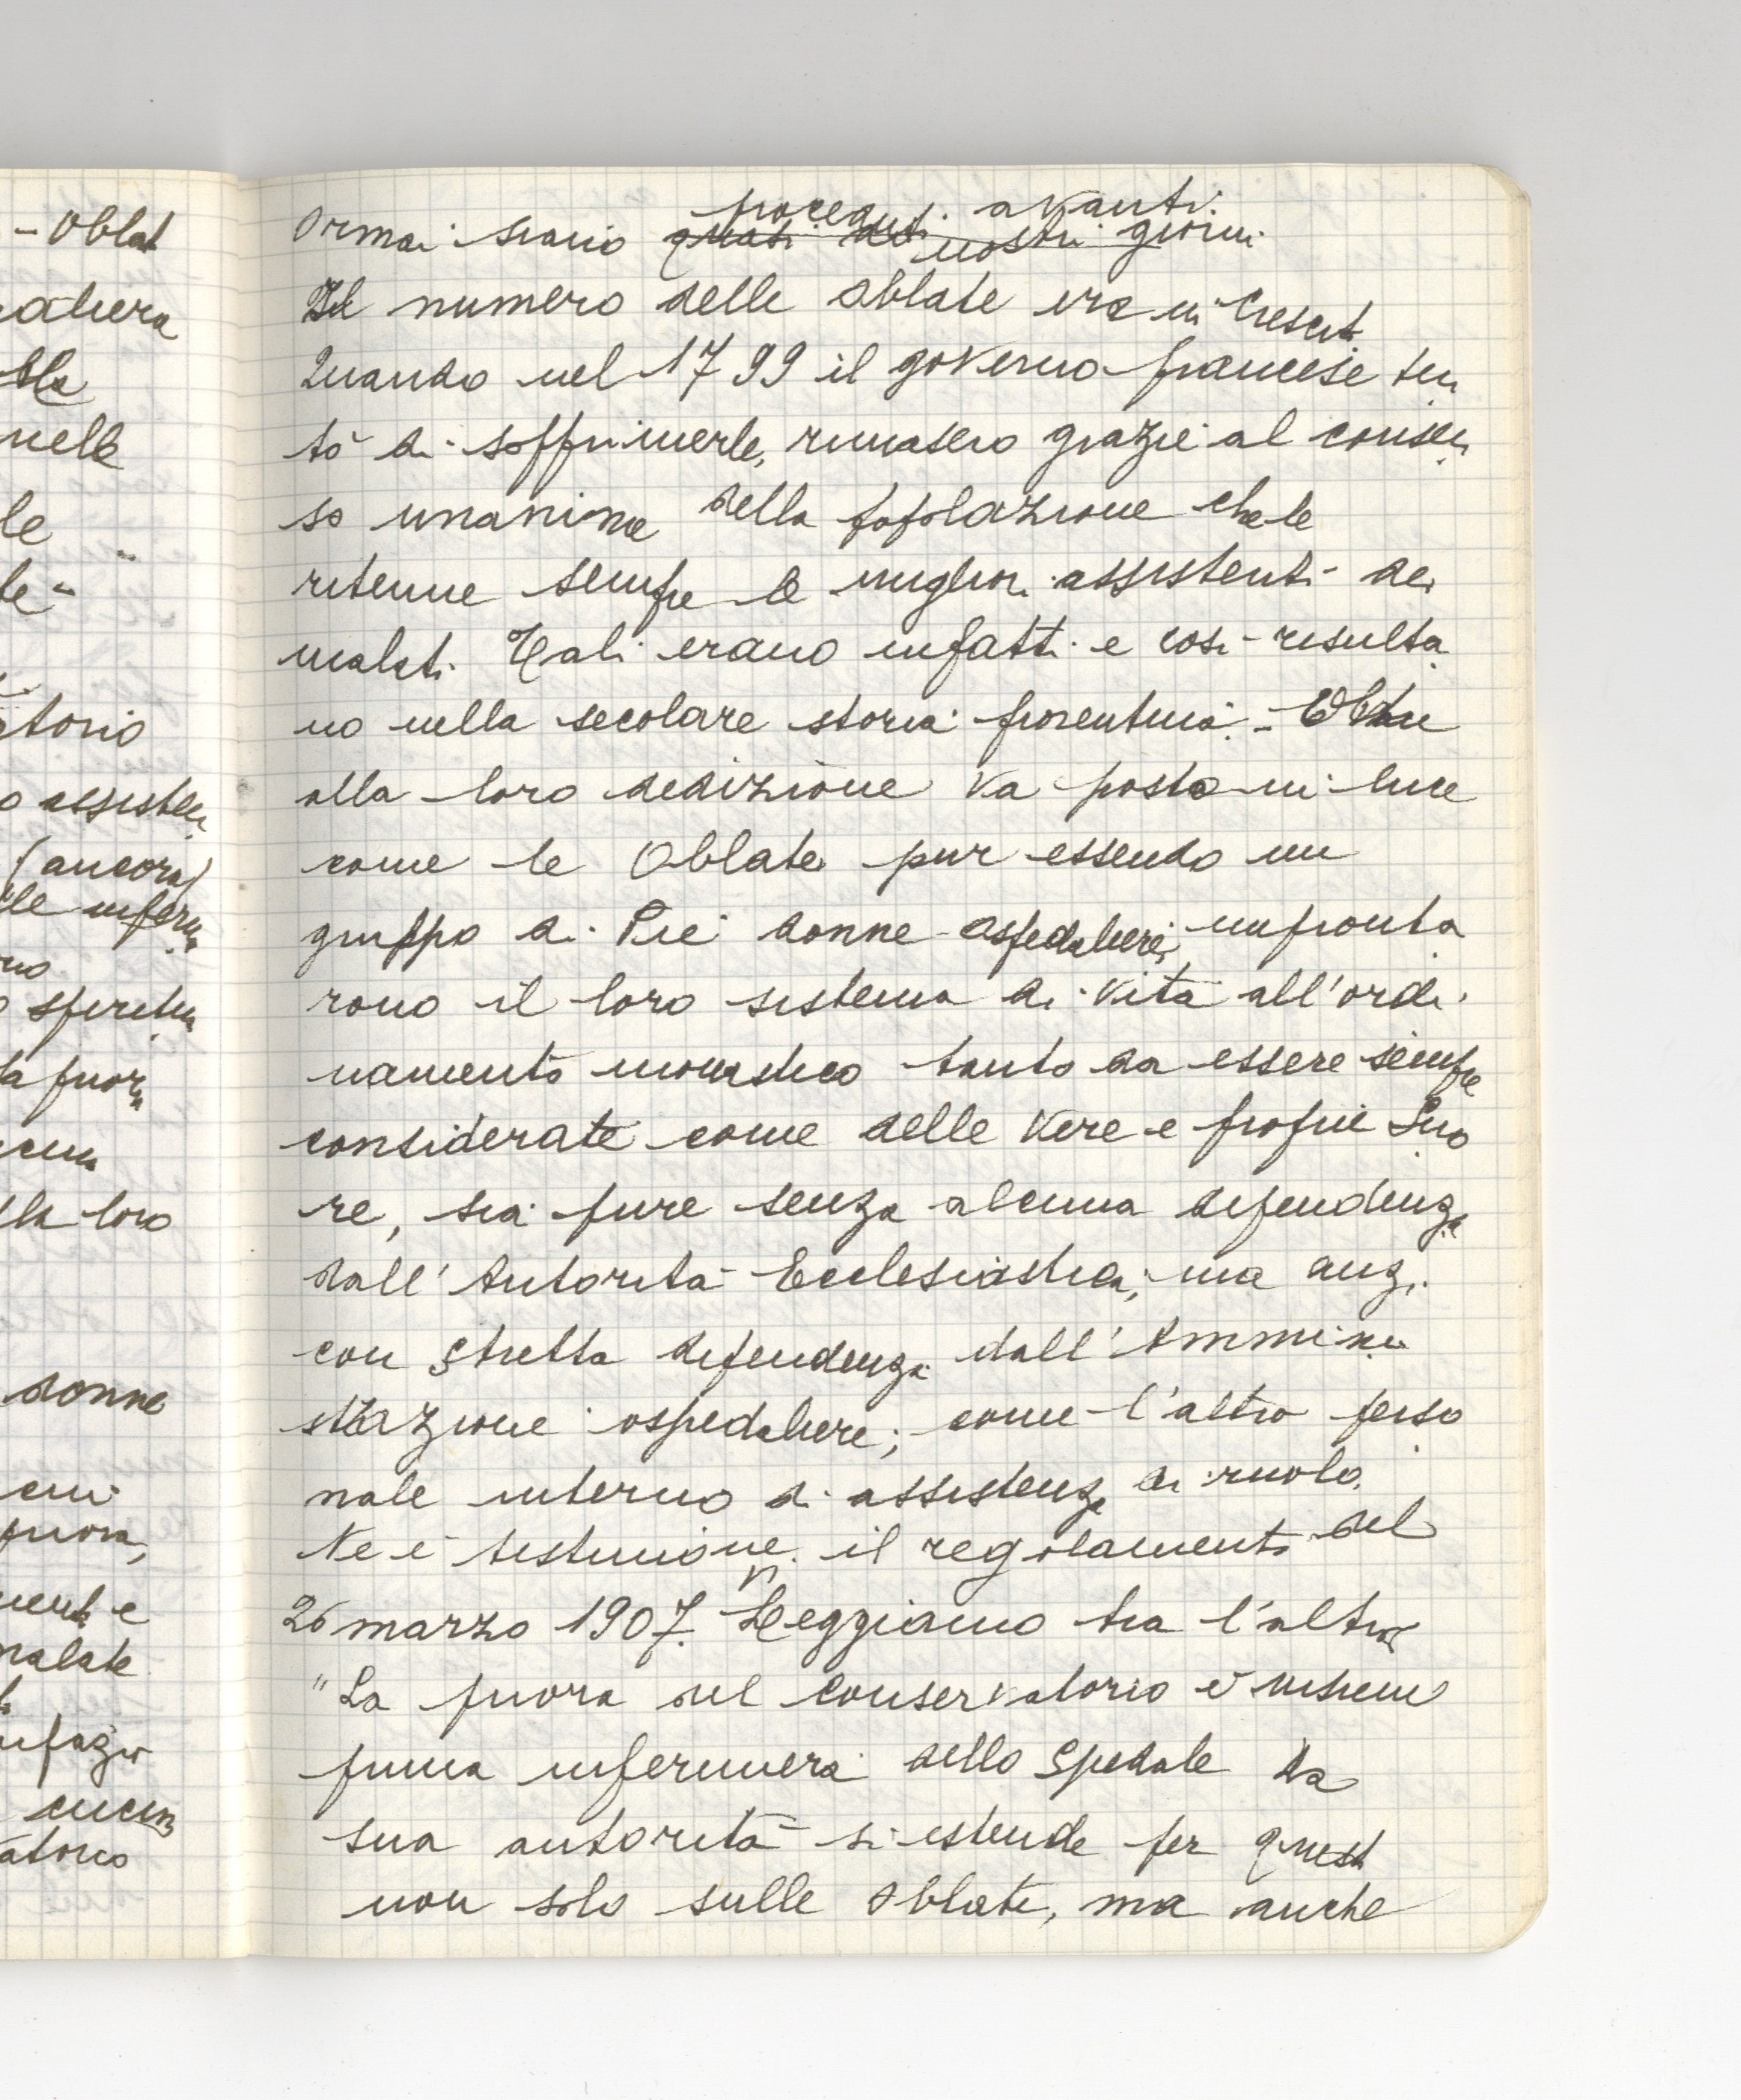 - Oblat
nelle
le
torio
o assisten
(ancora)
lle inferm
no
la loro
donne
cui
malate
cucin
Ormai siamo proceduti avanti.
quasi dei nostri giorni
Il numero delle Oblate era in crescit
Quando nel 1799 il governo francese ten
tò di sopprimerle, rimasero grazie al consen
so unanime della popolazione che le
ritenne sempre le migliori assistenti dei
malati. Tali erano infatti e così risulta
no nella secolare storia fiorentina. - Oltre
alla loro dedizione va posto in luce
come le Oblate pur essendo un
gruppo di Pie donne ospedaliere, impronta
rono il loro sistema di vita all'ordi
namento monastico tanto da essere sempre
considerate come delle vere e proprie Suo
re, sia pure senza alcuna dipendenza
dall'Autorità Ecclesiastica; ma anzi
con stretta dipendenza dall'Ammini
strazione ospedaliera; come l'altro perso
nale interno di assistenza di ruolo.
Ne è testimone il regolamento del
26 marzo 1907. Vi Leggiamo tra l'altro
"La priora del Conservatorio è insieme
prima infermiera dello Spedale la
sua autorità si estende per quest
non solo sulle Oblate, ma anche